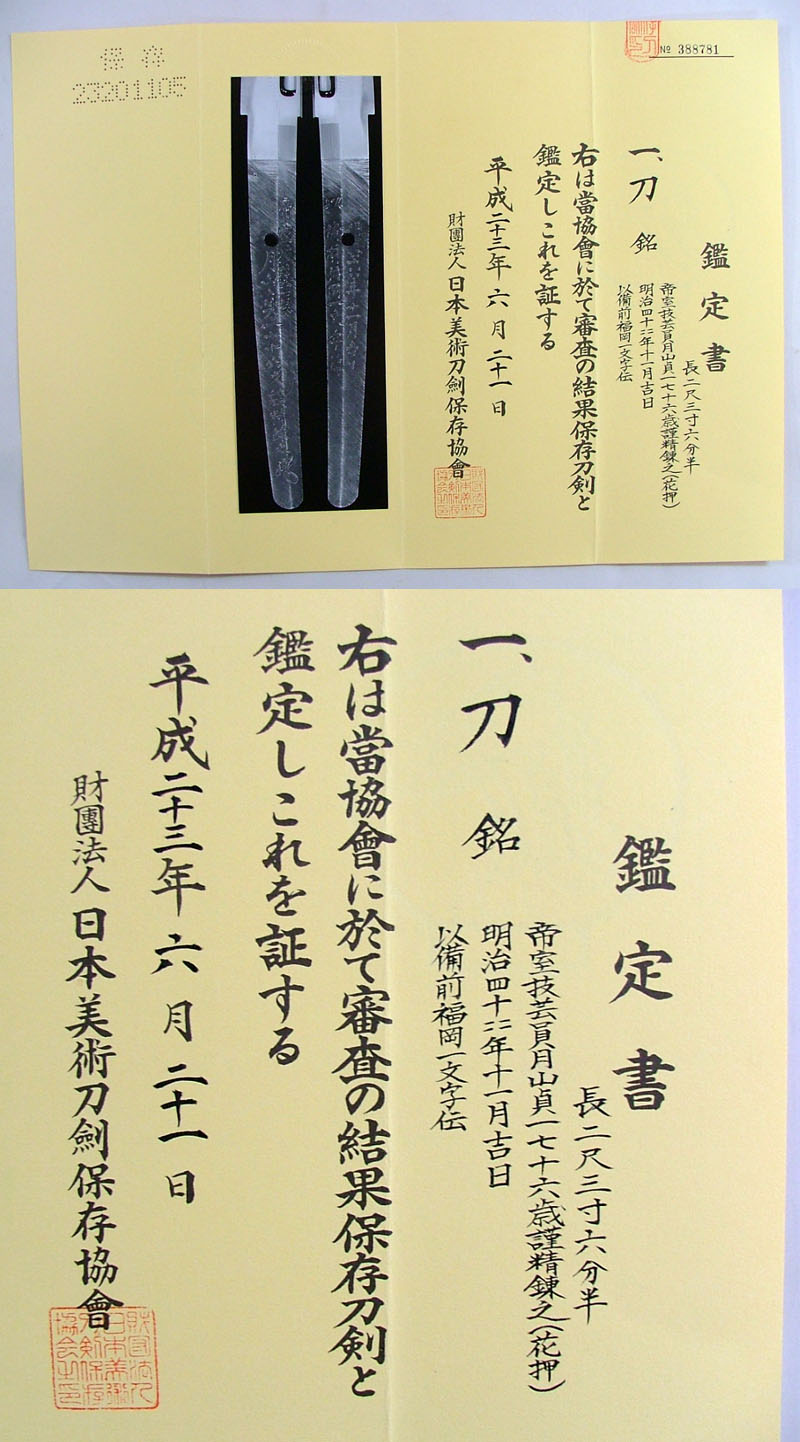 保存
23201105
№ 388781
鑑定書
長二尺三寸六分半
一、刀 銘
帝室技芸員月山貞一七十六歳謹精錬之(花押)
明治四十二二年十一月吉日
以備前福岡一文字伝
右は當協會に於て審査の結果保存刀剣と
鑑定しこれを証する
平成二十三年六月二十一日
財團法人日本美術刀劍保存協會
鑑定書
長二尺三寸六分半
一、刀 銘
帝室技芸員月山貞一七十六歳謹精錬之(花押)
明治四十二二年十一月吉日
以備前福岡一文字伝
右は當協會に於て審査の結果保存刀剣と
鑑定しこれを証する
平成二十三年六月二十一日
財團法人日本美術刀劍保存協會